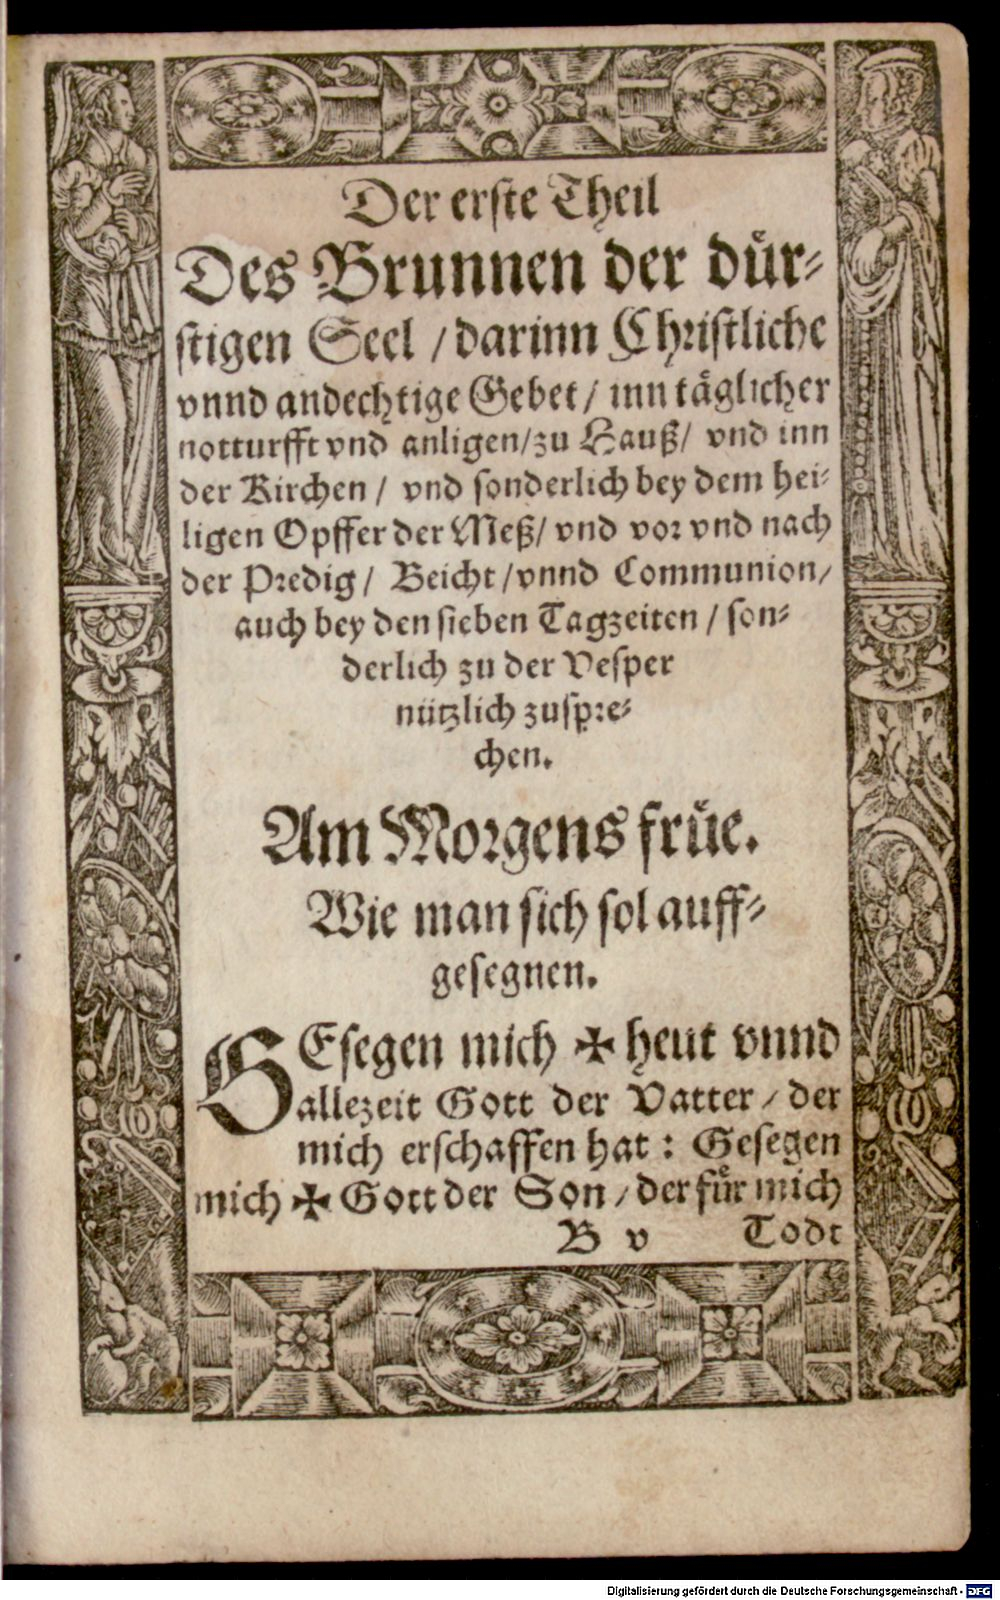 Der erste Theil
Des Brunnen der dür-
stigen Seel / darinn Christliche
vnnd andechtige Gebet / inn täglicher
notturfft vnd anligen / zu Hauß / vnd inn
der Kirchen / vnd sonderlich bey dem hei-
ligen Opffer der Meß / vnd vor vnd nach
der Predig / Beicht / vnnd Communion /
auch bey den sieben Tagzeiten / son-
derlich zu der Vesper
nützlich zuspre-
chen.
Am Morgens früe.
Wie man sich sol auff-
gesegnen.
GEsegen mich ✠ heut vnnd
allezeit Gott der Vatter / der
mich erschaffen hat : Gesegen
mich ✠ Gott der Son / der für mich
B v Todt
Digitalisierung gefördert durch die Deutsche Forschungsgemeinschaft - DFG